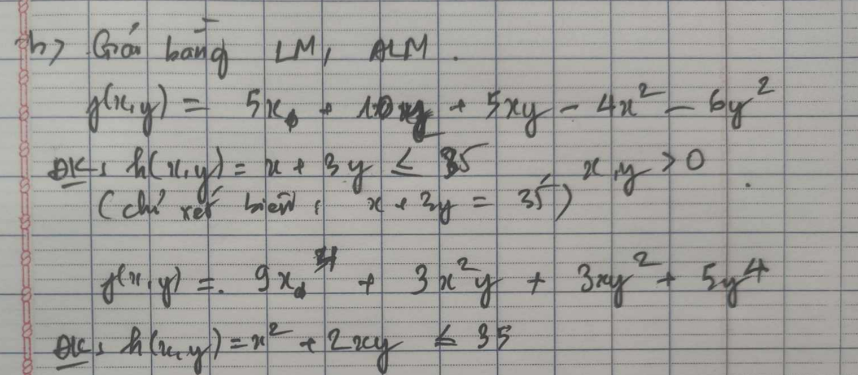 b) Giải bằng LM, ALM.
g(x,y) = 5x + 10y + 5xy - 4x² - 6y²
ĐK: h(x,y) = x + 3y ≤ 35 x,y > 0
(chỉ xét biên, x + 3y = 35)
g(x,y) = 9x⁴ + 3x²y + 3xy² + 5y⁴
ĐK: h(x,y) = x² + 2xy ≤ 35